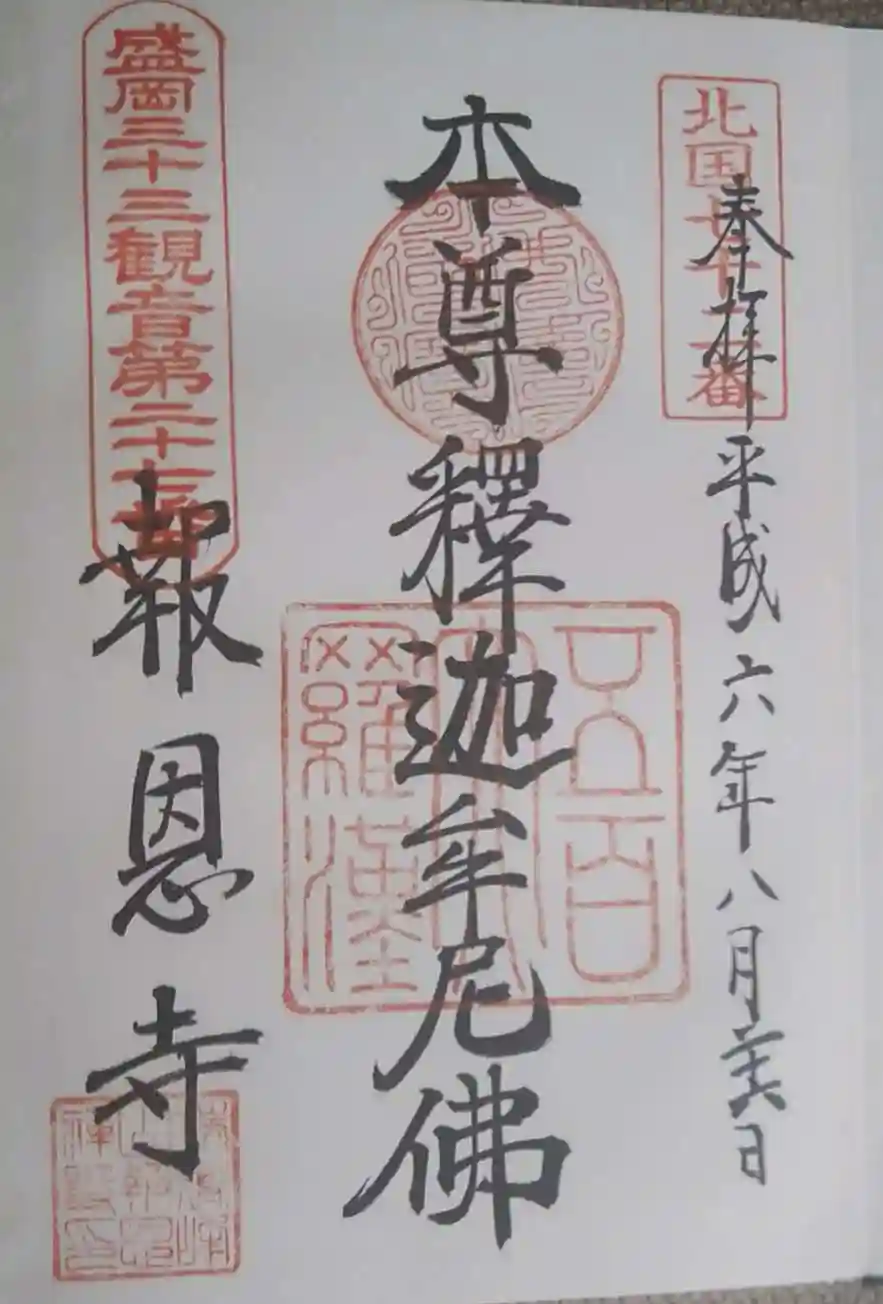 北国
番
奉拝 平成六年八月二十六日
本尊釋迦牟尼佛
五百
羅漢
盛岡三十三観音第二十七番
報恩寺